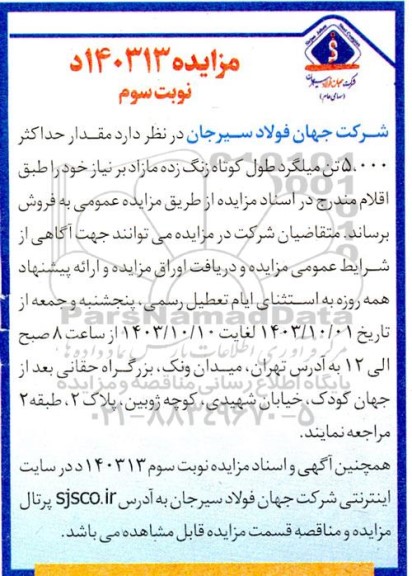 مزایده ۱۴۰۳۱۳د
نوبت سوم
شرکت جهان فولاد سیرجان
(سهامی عام)
شرکت جهان فولاد سیرجان در نظر دارد مقدار حداکثر
۵,۰۰۰ تن میلگرد طول کوتاه زنگ زده مازاد بر نیاز خود را طبق
اقلام مندرج در اسناد مزایده از طریق مزایده عمومی به فروش
برساند. متقاضیان شرکت در مزایده می توانند جهت آگاهی از
شرایط عمومی مزایده و دریافت اوراق مزایده و ارائه پیشنهاد
همه روزه به استثنای ایام تعطیل رسمی، پنجشنبه و جمعه از
تاریخ ۱۴۰۳/۱۰/۰۱ لغایت ۱۴۰۳/۱۰/۱۰ از ساعت ۸ صبح
الی ۱۲ به آدرس تهران، میدان ونک، بزرگراه حقانی بعد از
جهان کودک، خیابان شهیدی، کوچه ژوبین، پلاک ۲، طبقه ۲
مراجعه نمایند.
همچنین آگهی و اسناد مزایده نوبت سوم ۱۴۰۳۱۳د در سایت
اینترنتی شرکت جهان فولاد سیرجان به آدرس sjsco.ir پرتال
مزایده و مناقصه قسمت مزایده قابل مشاهده می باشد.
ParsNamadData
پایگاه اطلاع رسانی مناقصه و مزایده
۰۲۱-۸۸۳۴۹۶۷۰-۵